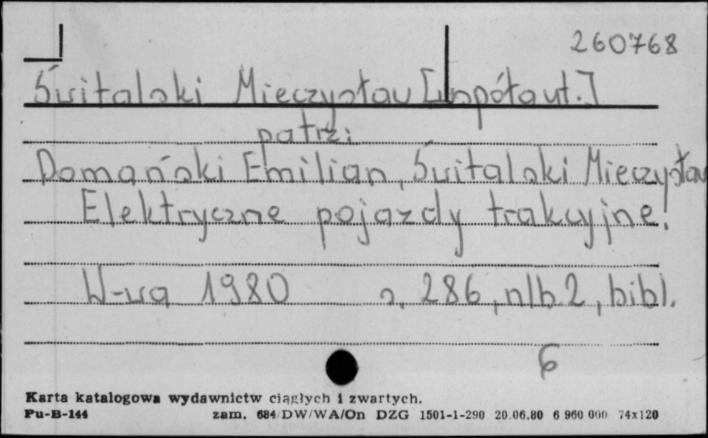 260768
Świtalski Mieczysław [współaut.]
patrz:
Domański Emilian, Świtalski Mieczysław
Elektryczne pojazdy trakcyjne.
W-wa 1980 s. 286, nlb 2, bibl.
6
Karta katalogowa wydawnictw ciągłych i zwartych.
Pu-B-144 zam. 684/DW/WA/On DZG 1501-1-290 20.06.80 6 960 000 74x120